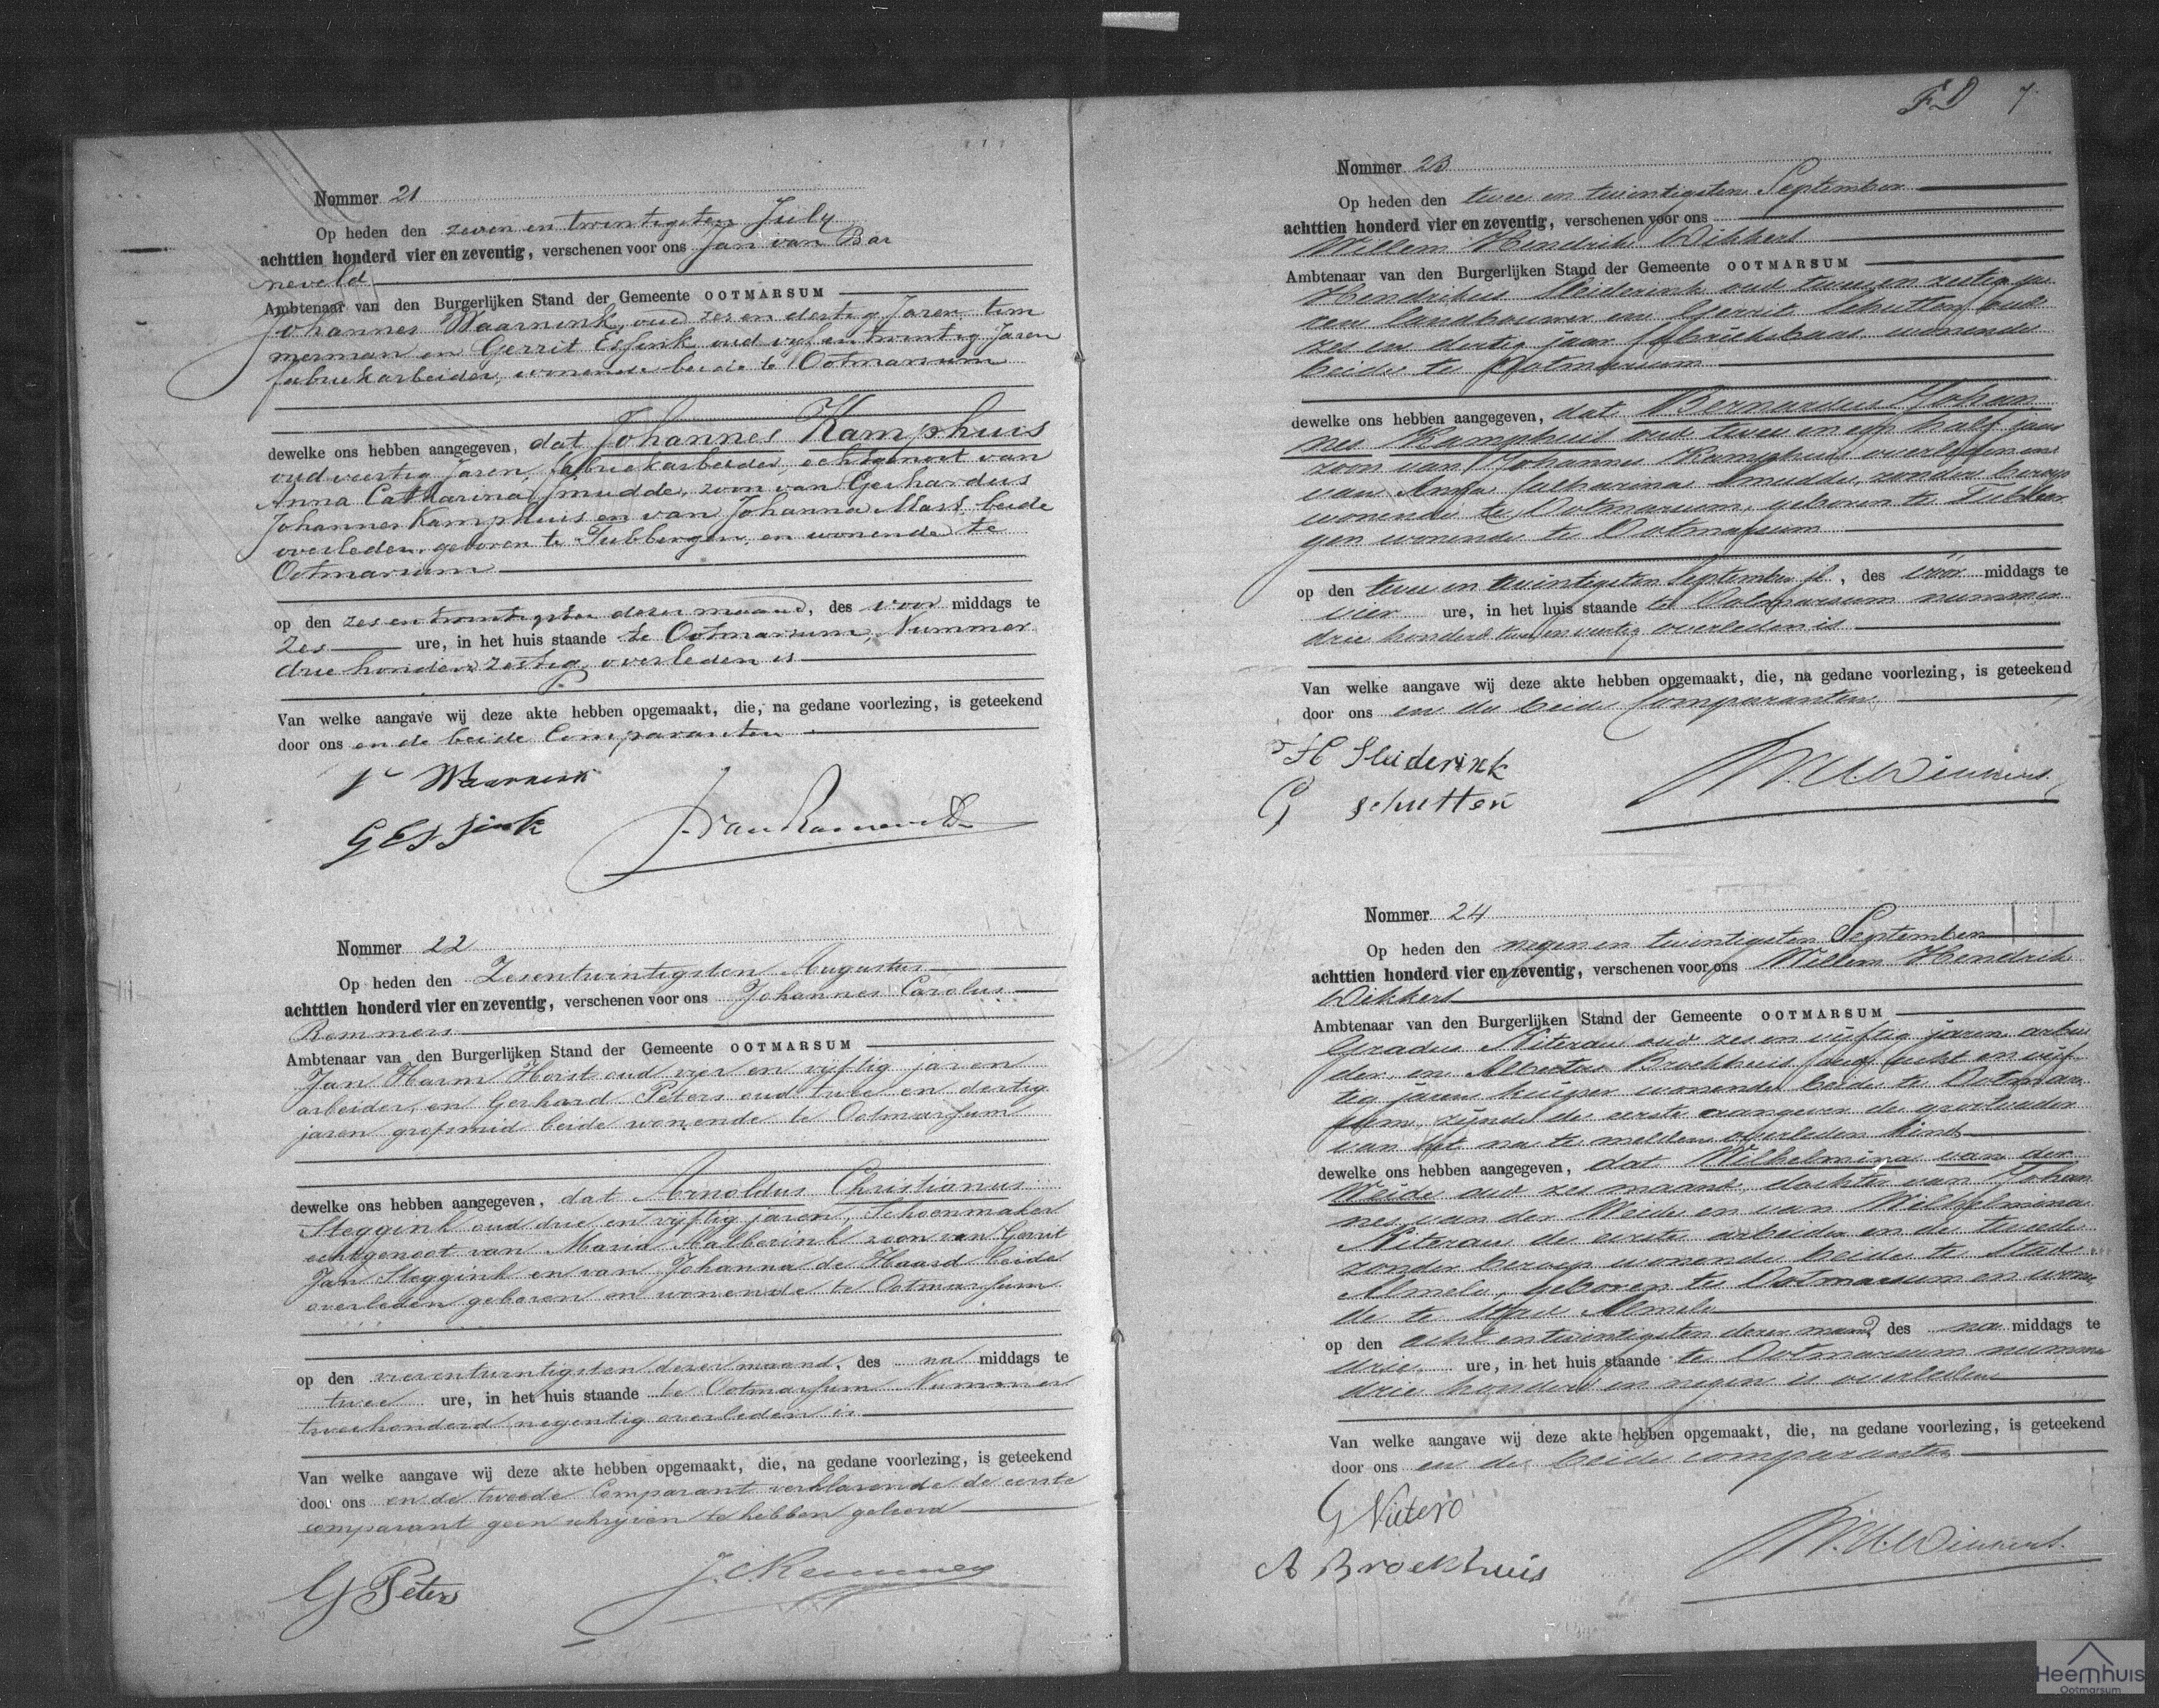 Nommer 21
Op heden den zeven en twintigsten July
achttien honderd vier en zeventig, verschenen voor ons Jan van Bar
neveld
Ambtenaar van den Burgerlijken Stand der Gemeente OOTMARSUM
Johannes Waarnink, oud zes en dertig Jaren tim
merman en Gerrit Essink oud vijf en twintig Jaren
fabriekarbeider, wonende beide te Ootmarsum
dewelke ons hebben aangegeven, dat Johannes Kamphuis
oud veertig Jaren, fabriekarbeider, echtgenoot van
Anna Catharina Smudde, zoon van Gerhardus
Johannes Kamphuis en van Johanna Mast, beide
overleden, geboren te Tubbergen, en wonende te
Ootmarsum
op den zes en twintigsten dezer maand, des voor middags te
zes ure, in het huis staande te Ootmarsum, Nummer
drie honderd zestig overleden is
Van welke aangave wij deze akte hebben opgemaakt, die, na gedane voorlezing, is geteekend
door ons en de beide Comparanten
J Waarnink
G Essink
J van Barneveld
Nommer 22
Op heden den Zesentwintigsten Augustus
achttien honderd vier en zeventig, verschenen voor ons Johannes Carolus
Remmers
Ambtenaar van den Burgerlijken Stand der Gemeente OOTMARSUM
Jan Harm Horst oud vier en vijftig jaren
arbeider, en Gerhard Peters oud twee en dertig
jaren grofsmid beide wonende te Ootmarsum
dewelke ons hebben aangegeven, dat Arnoldus Christianus
Steggink oud drie en vijftig jaren, Schoenmaker
echtgenoot van Maria Malberink zoon van Gerrit
Jan Steggink en van Johanna de Haard beide
overleden geboren en wonende te Ootmarsum
op den vierentwintigsten dezer maand, des na middags te
twee ure, in het huis staande te Ootmarsum Nummer
tweehonderd negentig overleden is
Van welke aangave wij deze akte hebben opgemaakt, die, na gedane voorlezing, is geteekend
door ons en de tweede Comparant verklarende de eerste
comparant geen schrijven te hebben geleerd
G Peters
J.C. Remmers
FD 7
Nommer 23
Op heden den twee en twintigsten September
achttien honderd vier en zeventig, verschenen voor ons
Willem Hendrik Wikkers
Ambtenaar van den Burgerlijken Stand der Gemeente OOTMARSUM
Hendrikus Sleiderink oud twee en zestig ja
ren landbouwer en Gerrit Schutten oud
zes en dertig jaar fabrieksbaas wonende
beide te Ootmarsum
dewelke ons hebben aangegeven, dat Bernardus Johan
nes Kamphuis oud twee en een half jaar
zoon van Johannes Kamphuis overleden en
van Anna Catharina Smudde, zonder beroep
wonende te Ootmarsum, geboren te Tubber
gen wonende te Ootmarsum
op den twee en twintigsten September jl, des voor middags te
vier ure, in het huis staande te Ootmarsum nummer
drie honderd twee en veertig overleden is
Van welke aangave wij deze akte hebben opgemaakt, die, na gedane voorlezing, is geteekend
door ons en de beide Comparanten
H Sleiderink
G Schutten
W.H. Wikkers
Nommer 24
Op heden den negen en twintigsten September
achttien honderd vier en zeventig, verschenen voor ons Willem Hendrik
Wikkers
Ambtenaar van den Burgerlijken Stand der Gemeente OOTMARSUM
Gradus Niterau oud zes en vijftig jaren arbei
der, en Albertus Broekhuis oud acht en vijf
tig jaren kuiper wonende beide te Ootmar
sum, zijnde de eerste aangever de grootvader
van het na te melden overleden kind
dewelke ons hebben aangegeven, dat Wilhelmina van der
Weide oud zes maand, dochter van Johan
nes van der Weide en van Wilhelmina
Niterau de eerste arbeider en de tweede
zonder beroep wonende beide te Stad
Almelo, geboren te Ootmarsum en wonen
de te Stad Almelo
op den acht en twintigsten dezer maand des na middags te
drie ure, in het huis staande te Ootmarsum nummer
drie honderd en negen is overleden
Van welke aangave wij deze akte hebben opgemaakt, die, na gedane voorlezing, is geteekend
door ons en de beide comparanten
G Nitero
A Broekhuis
W.H. Wikkers
Heemhuis
Ootmarsum